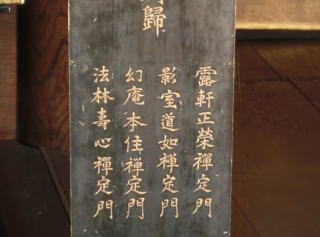 歸
露軒正榮禪定門
影室道如禅定門
幻庵本住禪定門
法林壽心禪定門